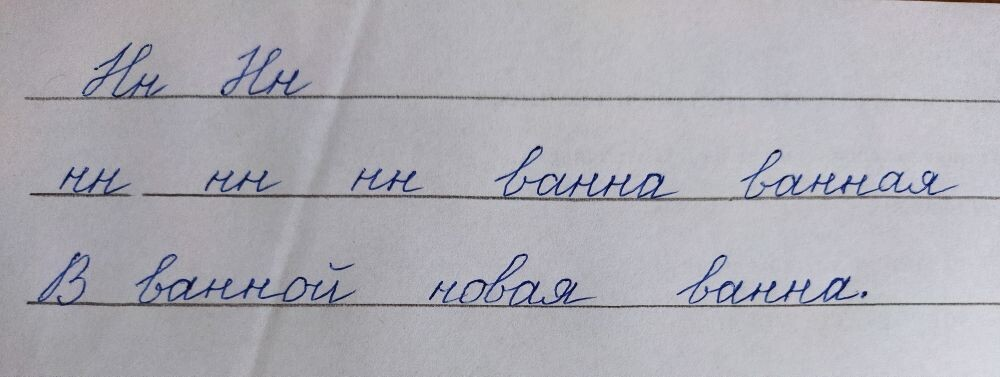 Нн Нн
нн нн нн ванна ванная
В ванной новая ванна.